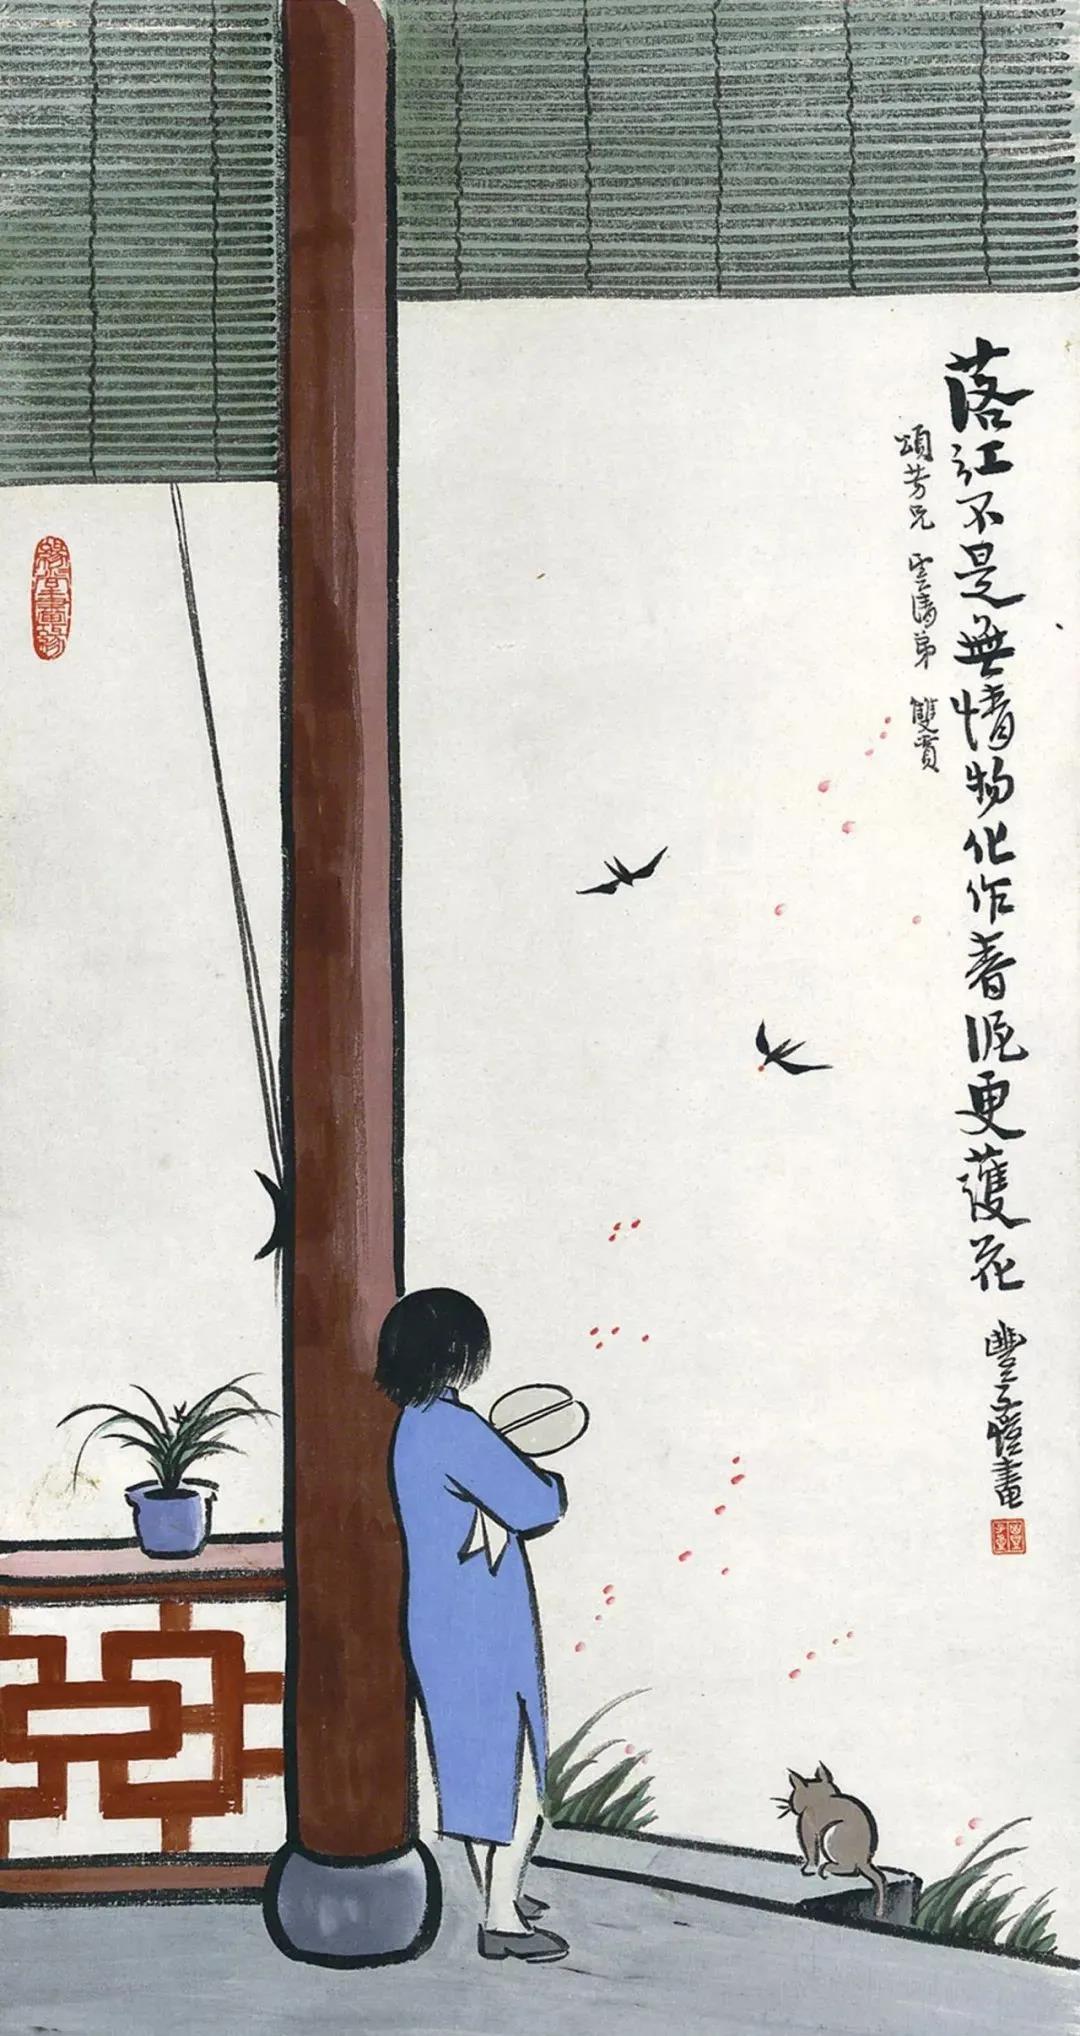 落紅不是無情物化作春泥更護花 豐子愷畫
頌芳兄 雲清弟 雙賞